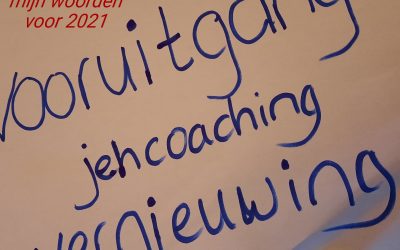 mijn woorden
voor 2021
vooruitgang
jehcoaching
vernieuwing